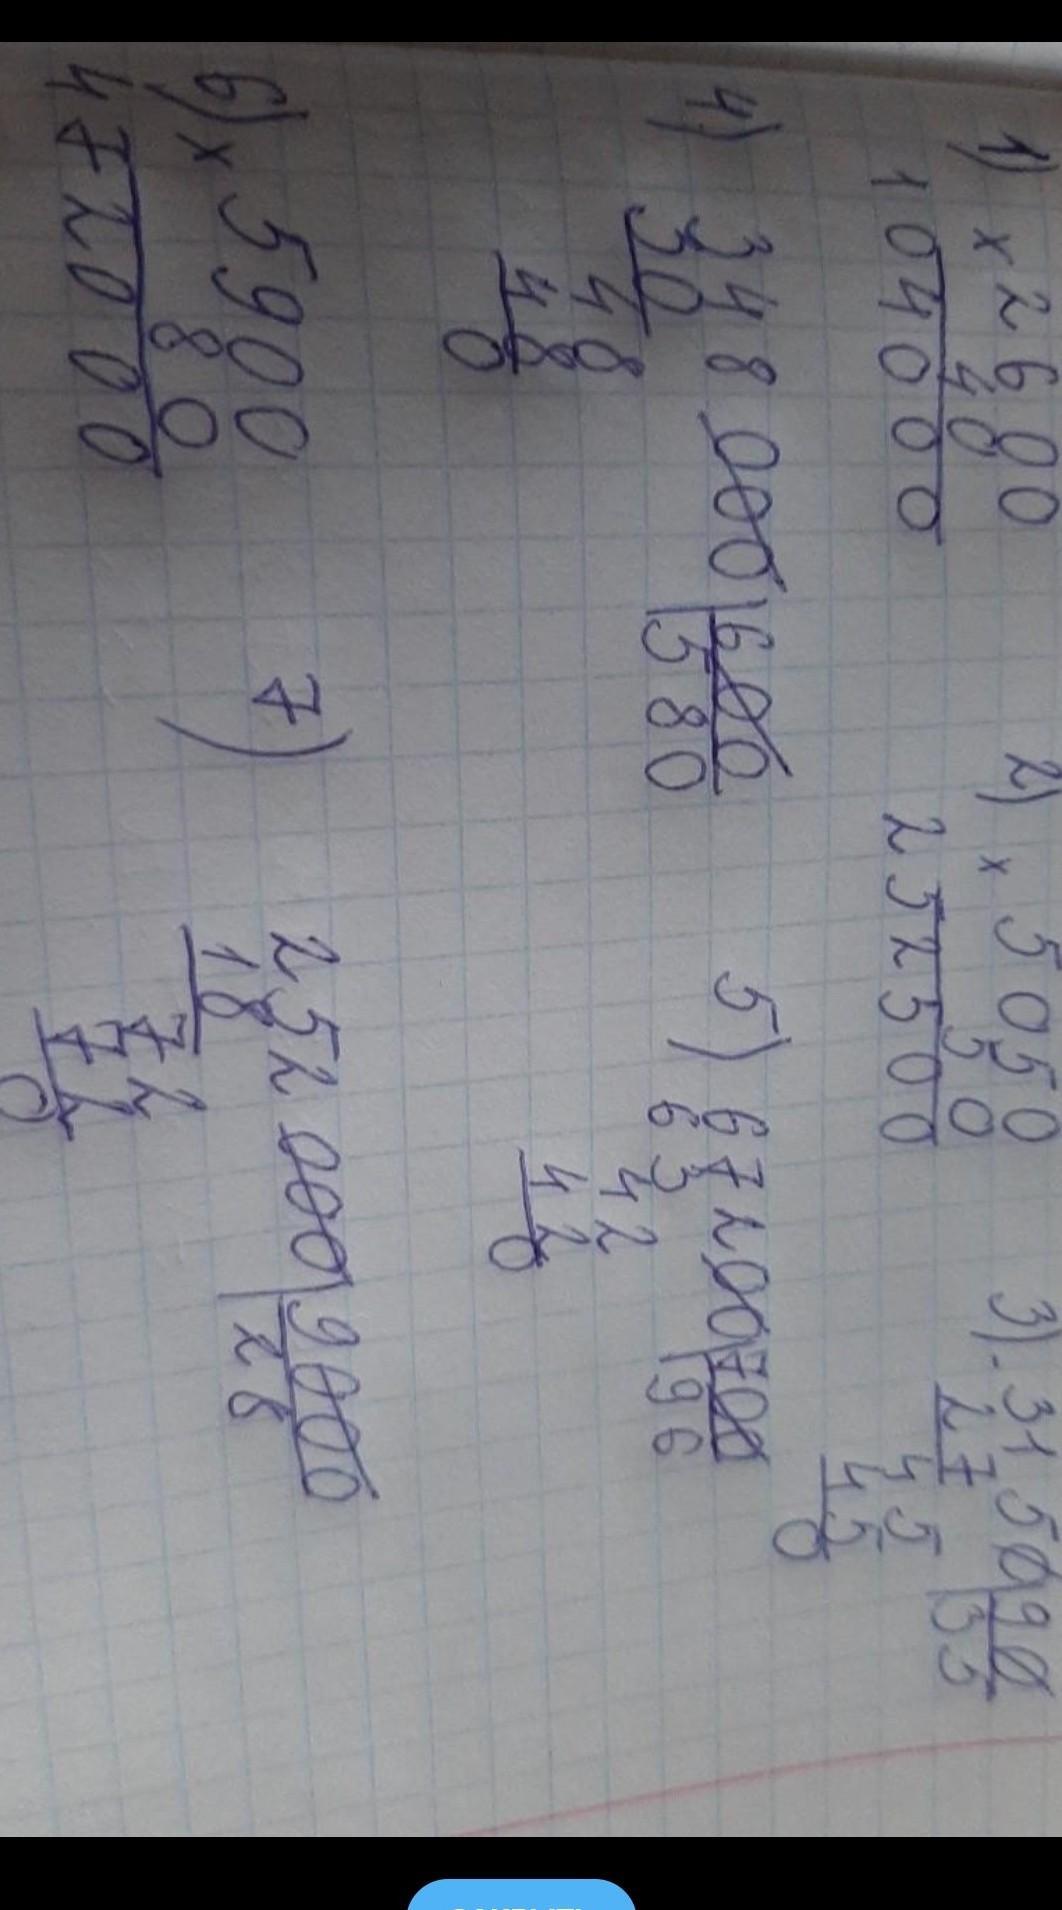 1) × 2600
40
104000
2) × 5050
50
252500
3) . 31500 | 90
27 | 35
45
45
0
4) 348 000 | 600
30 | 580
48
48
0
5) 67200 | 700
63 | 96
42
42
0
6) × 5900
80
472000
7) 252 000 | 9000
18 | 28
72
72
0